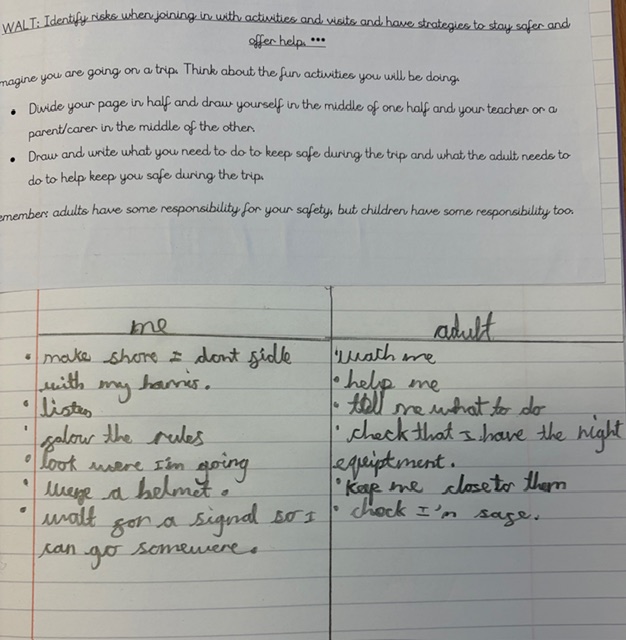 WALT: Identify risks when joining in with activities and visits and have strategies to stay safer and
offer help. •••
magine you are going on a trip. Think about the fun activities you will be doing.
• Divide your page in half and draw yourself in the middle of one half and your teacher or a
parent/carer in the middle of the other.
• Draw and write what you need to do to keep safe during the trip and what the adult needs to
do to help keep you safe during the trip.
emember: adults have some responsibility for your safety, but children have some responsibility too.
me
• make shore I dont fidle
with my harnis.
• listen
• folow the rules
• look were I'm going
• were a helmet.
• wait for a signal so I
can go somewere.
adult
• wach me
• help me
• tell me what to do
• check that I have the right
equiptment.
• Keep me close to them
• check I'm safe.